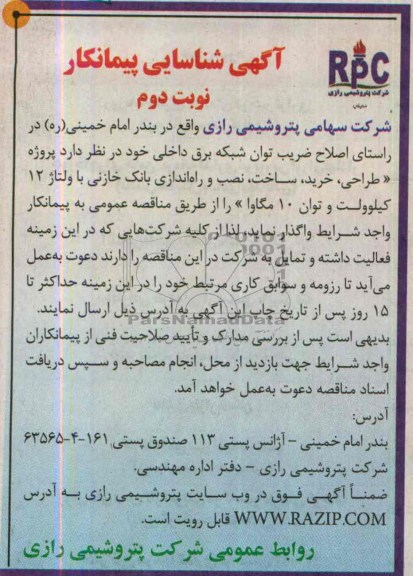 آگهی شناسایی پیمانکار
نوبت دوم
RPC
شرکت پتروشیمی رازی
شرکت سهامی پتروشیمی رازی واقع در بندر امام خمینی(ره) در
راستای اصلاح ضریب توان شبکه برق داخلی خود در نظر دارد پروژه
« طراحی، خرید، ساخت، نصب و راه‌اندازی بانک خازنی با ولتاژ ۱۲
کیلوولت و توان ۱۰ مگاوا » را از طریق مناقصه عمومی به پیمانکار
واجد شرایط واگذار نماید، لذا از کلیه شرکت‌هایی که در این زمینه
فعالیت داشته و تمایل به شرکت در این مناقصه را دارند دعوت به‌عمل
می‌آید تا رزومه و سوابق کاری مرتبط خود را در این زمینه حداکثر تا
۱۵ روز پس از تاریخ چاپ این آگهی به آدرس ذیل ارسال نمایند.
ParsNamadData
بدیهی است پس از بررسی مدارک و تأیید صلاحیت فنی از پیمانکاران
واجد شرایط جهت بازدید از محل، انجام مصاحبه و سپس دریافت
اسناد مناقصه دعوت به‌عمل خواهد آمد.
آدرس:
بندر امام خمینی – آژانس پستی ۱۱۳ صندوق پستی ۱۶۱-۴-۶۳۵۶۵
شرکت پتروشیمی رازی – دفتر اداره مهندسی.
ضمناً آگهی فوق در وب سایت پتروشیمی رازی به آدرس
WWW.RAZIP.COM قابل رویت است.
روابط عمومی شرکت پتروشیمی رازی